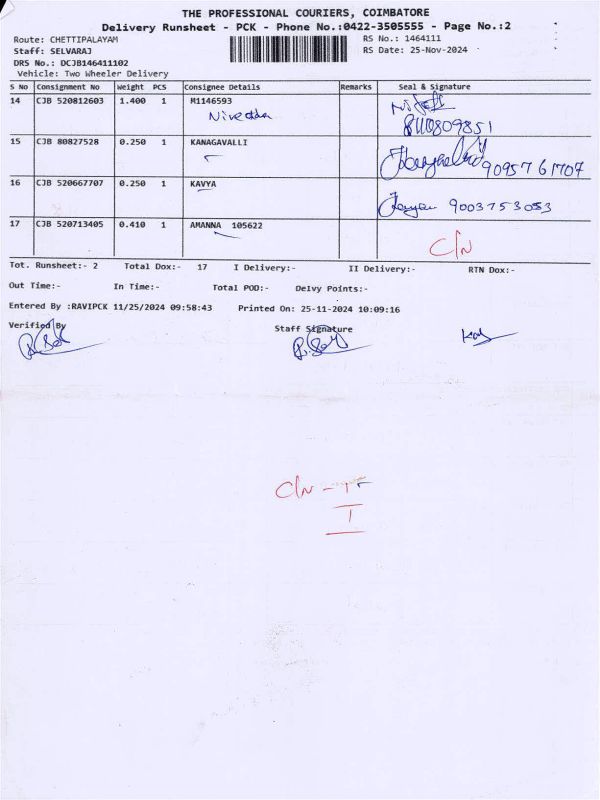 THE PROFESSIONAL COURIERS, COIMBATORE
Delivery Runsheet - PCK - Phone No.:0422-3505555 - Page No.:2
Route: CHETTIPALAYAM RS No.: 1464111
Staff: SELVARAJ RS Date: 25-Nov-2024
DRS No.: DCJB146411102
Vehicle: Two Wheeler Delivery
S No Consignment No Weight PCS Consignee Details Remarks Seal & Signature
14 CJB 520812603 1.400 1 M1146593
Nivedda 8110809851
15 CJB 80827528 0.250 1 KANAGAVALLI 9095761707
16 CJB 520667707 0.250 1 KAVYA 9003753053
17 CJB 520713405 0.410 1 AMANNA 105622 C/N
Tot. Runsheet:- 2 Total Dox:- 17 I Delivery:- II Delivery:- RTN Dox:-
Out Time:- In Time:- Total POD:- Delvy Points:-
Entered By :RAVIPCK 11/25/2024 09:58:43 Printed On: 25-11-2024 10:09:16
Verified By Staff Signature
C/N -